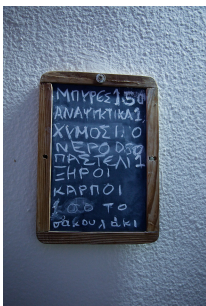 ΜΠΥΡΕΣ 1 50
ΑΝΑΨΥΚΤΙΚΑ 1
ΧΥΜΟΣ
ΝΕΡΟ 050
ΠΑΣΤΕΛΙ 1
ΞΗΡΟΙ
ΚΑΡΠΟΙ
ΤΟ
σακουλάκι